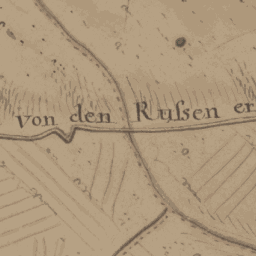 von den Rüssen er